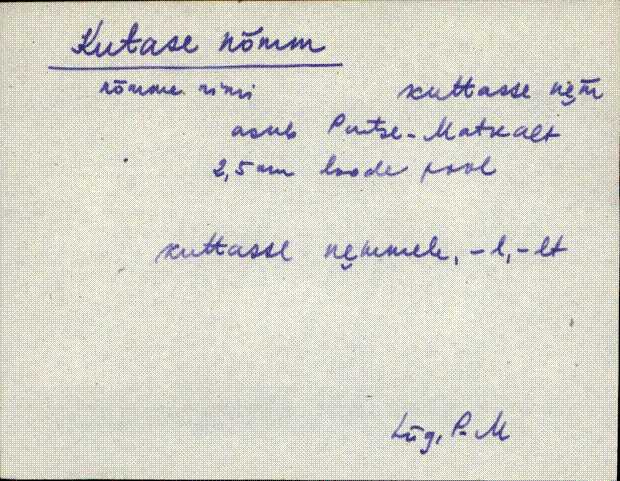 Kutase nõmm
nõmme nimi kuttasse ne̮m̄
asub Purtse-Matkalt
2,5 km loode pool
kuttasse ne̮mmele, -l, -lt
Lüg, P-M